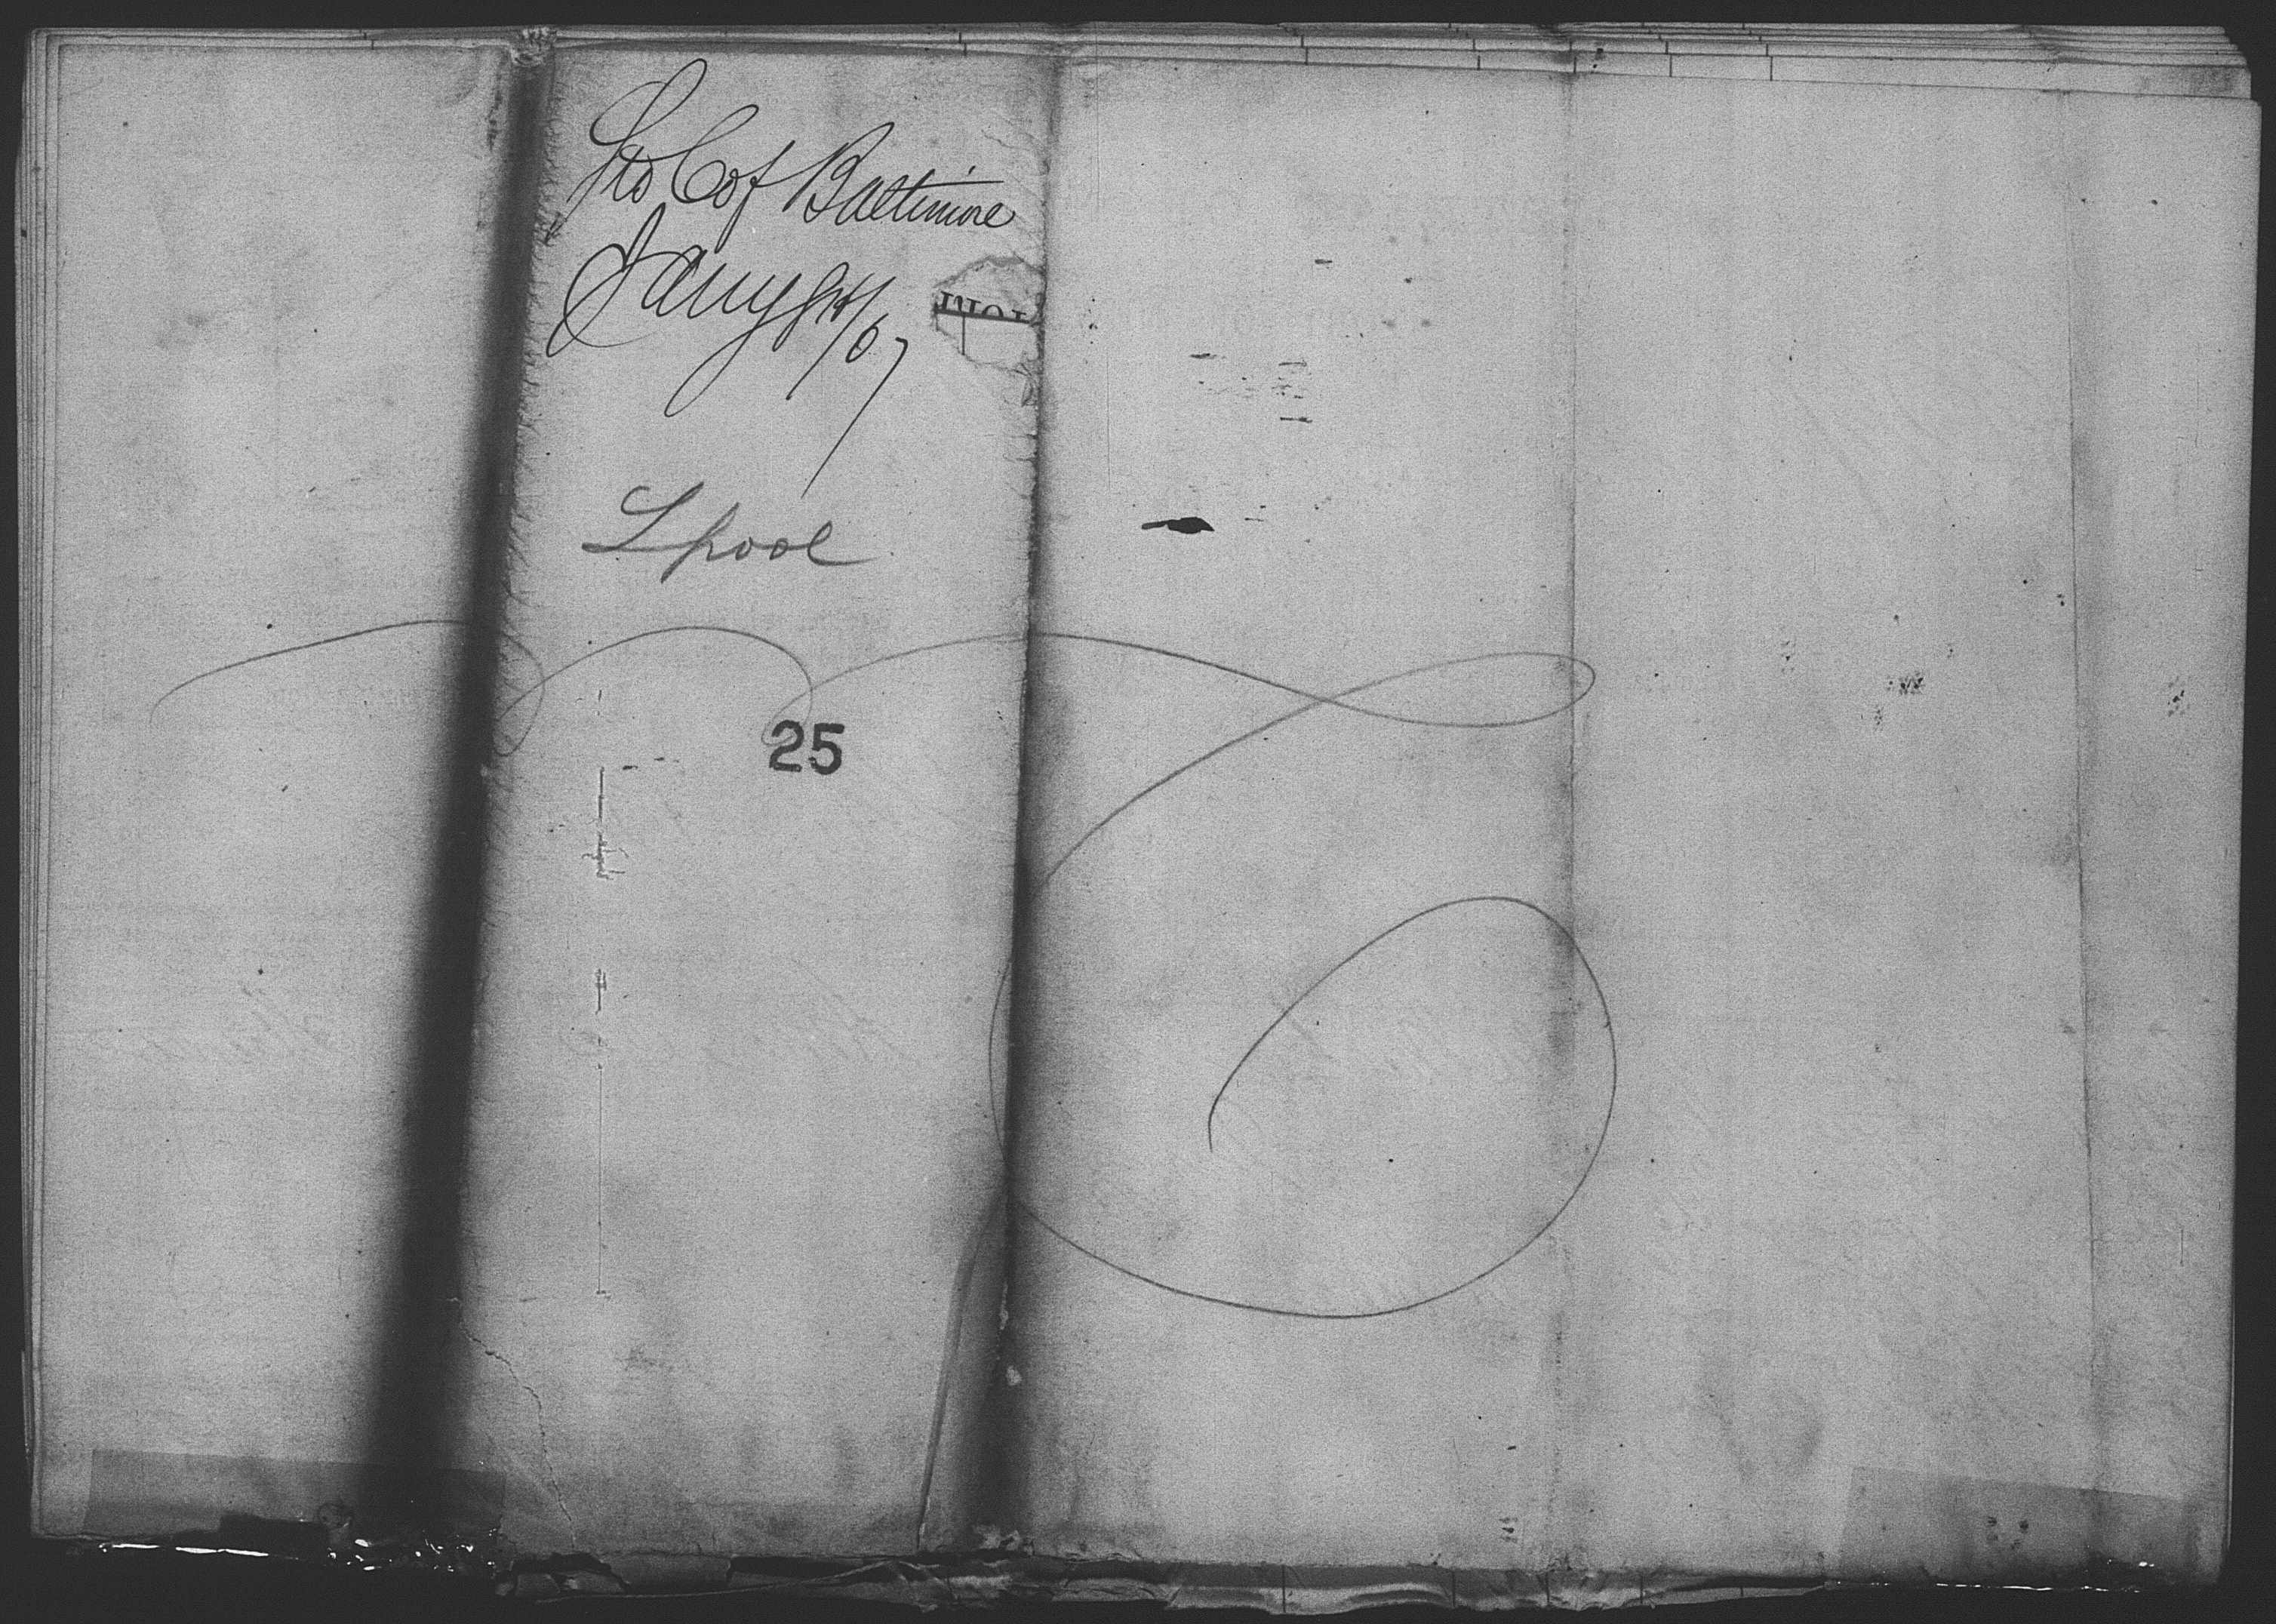 Str C of Baltimore
Jany 8th/67
Lpool
25